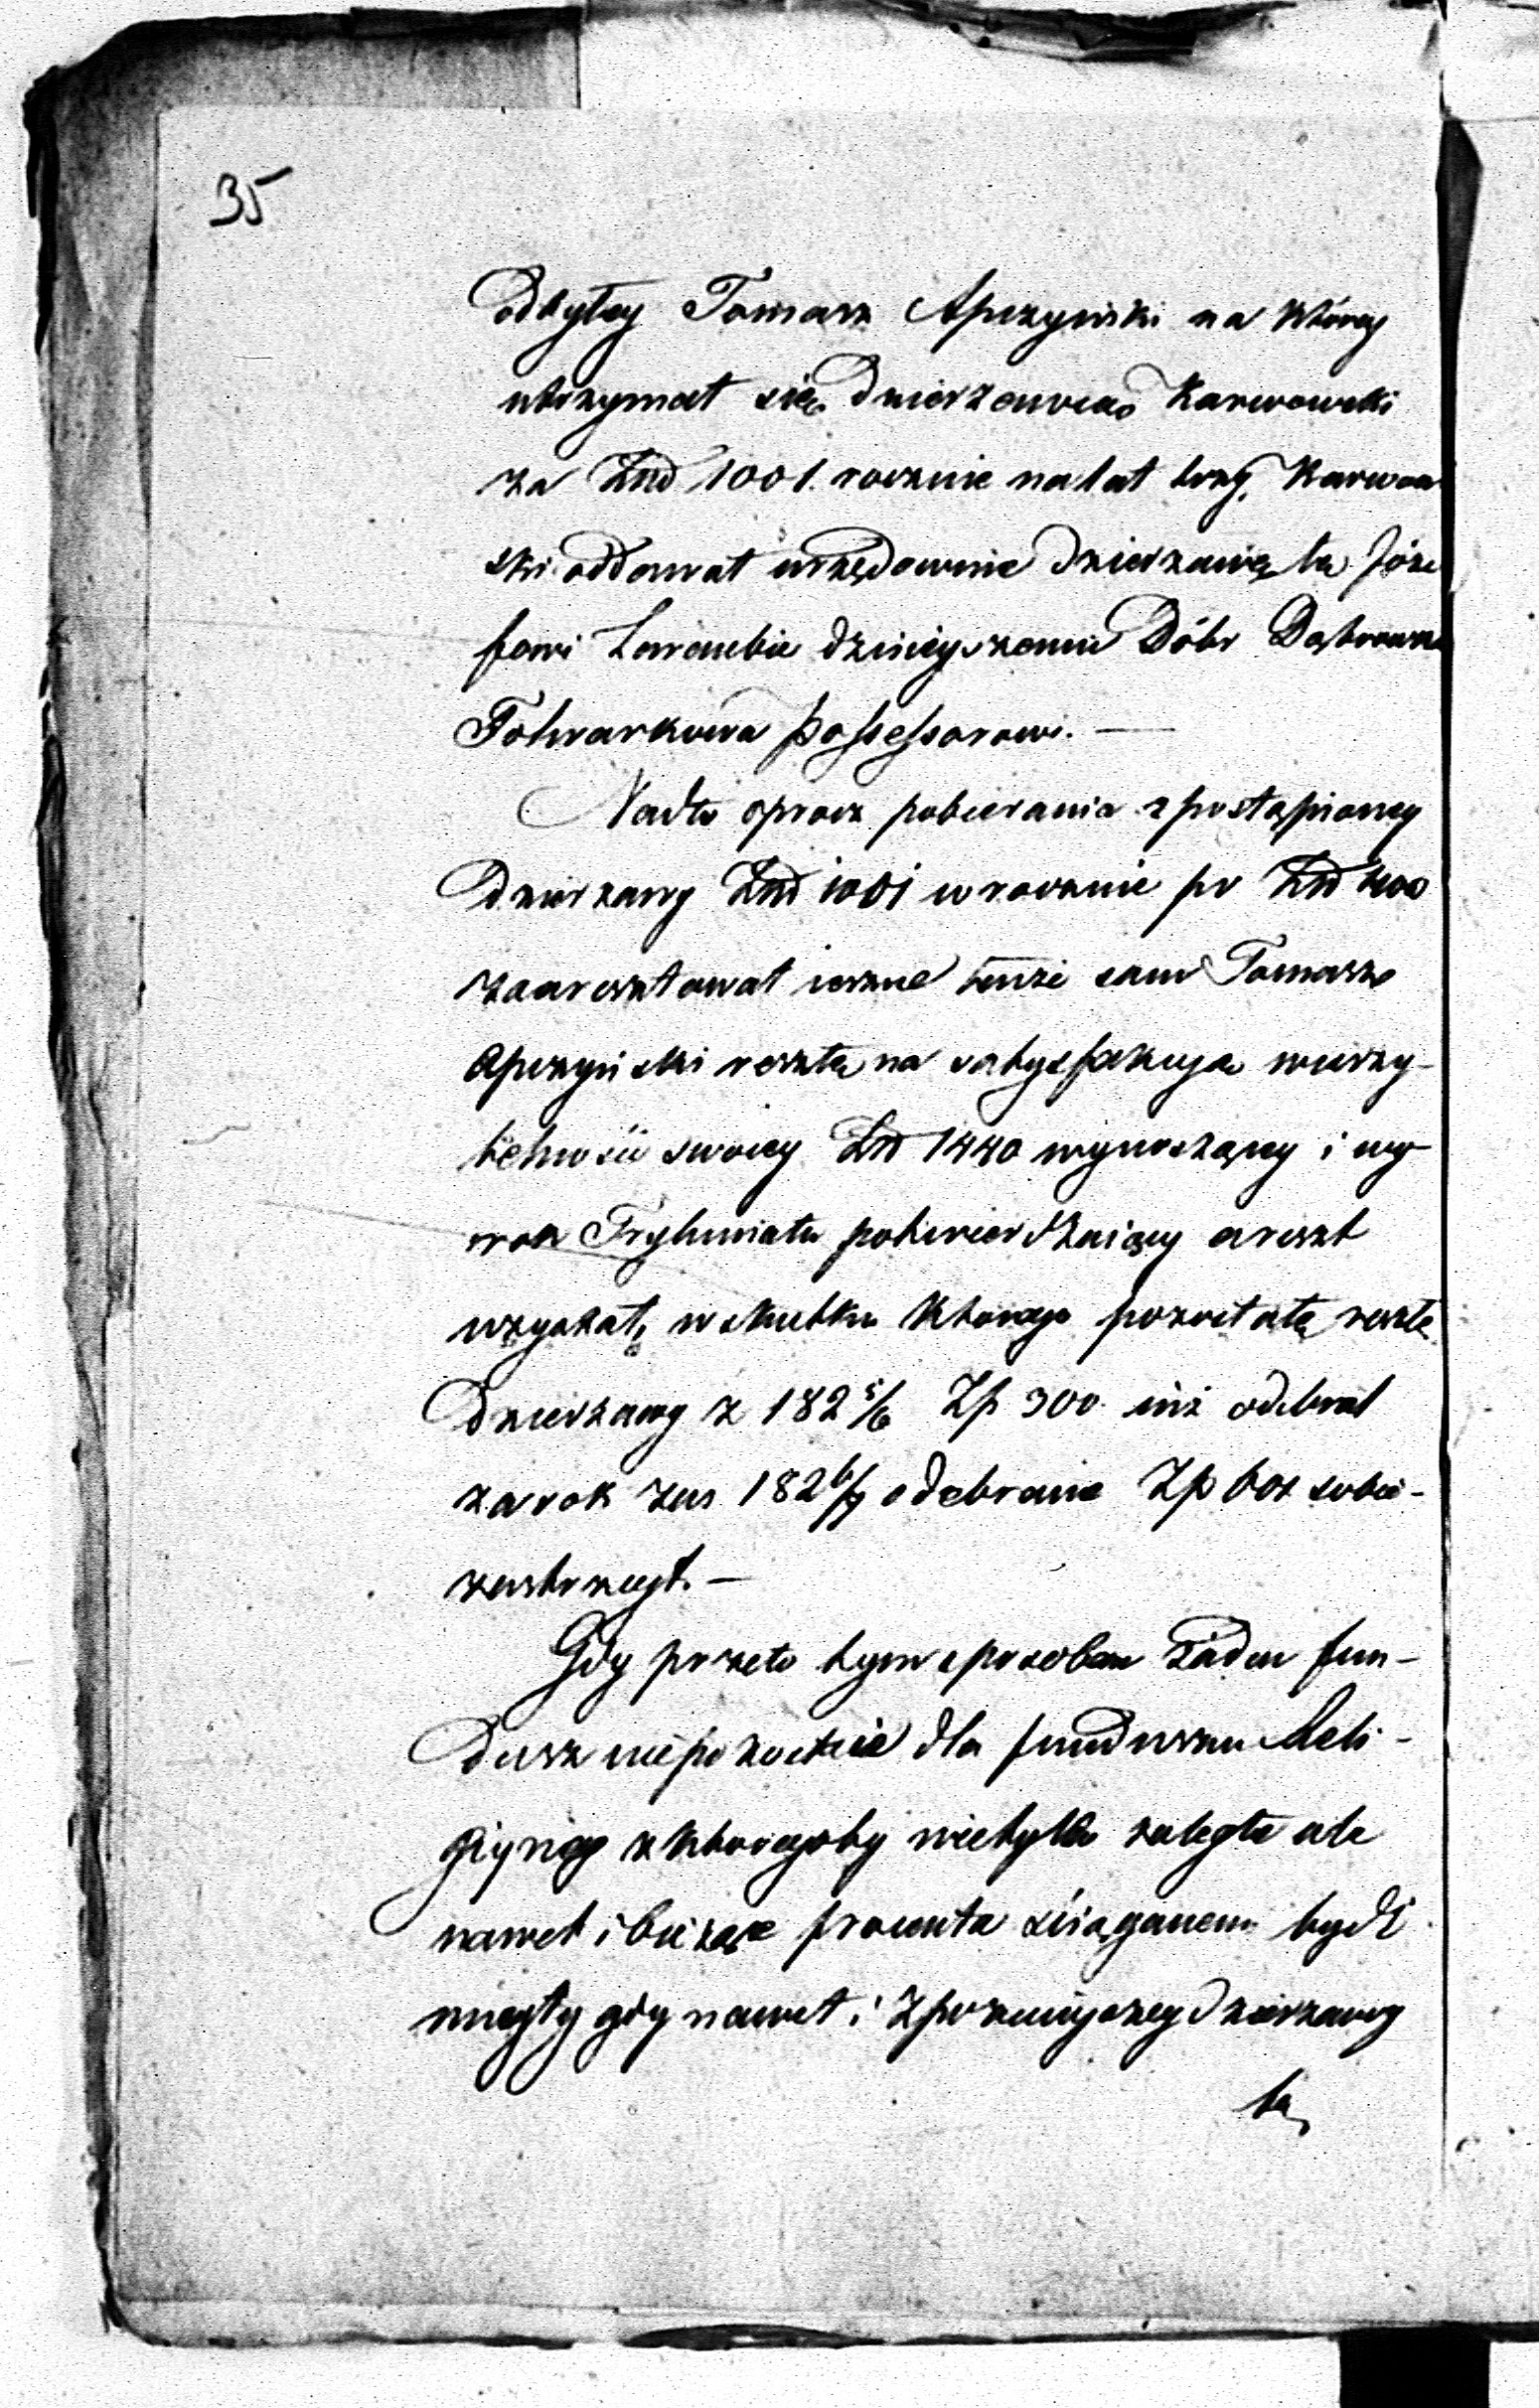 35
odbytey Tomasz Apczyński na którey
utrzymał się Dzierzawcą Karwowski
za Złł 1001. rocznie na lat trzy, Karwow
ski oddawał urzędownie dzierzawę tę Józe
fowi Zarembie dzisieyszemu Dóbr Dąbrowa
Folwarkowa Possessorowi. —
Nadto oprocz pobierania z postąpioney
Dzierzawy Złł 1001 w rocznie po Złł 400
zaaresztował ieszcze tenże sam Tomasz
Apczyński resztę na satysfakcyą wierzy-
telności swoiey Złł 1440 wynoszącey i wy-
rok Trybunału potwierdzaiący areszt
uzyskał, w skutku którego pozostałą resztę
Dzierzawy z 182 5/6 Zp 300 iuż odebrał
za rok zaś 182 6/7 odebranie Zp 601 sobie-
zastrzegł. —
Gdy przeto tym sposobem żaden fun-
dusz niepozostaie dla funduszu Reli-
giynego z któregoby nietylko zaległe ale
nawet i bieżące procenta ściąganemi bydź
mogły gdy nawet i z pozmieyszey dzierzawy
tę